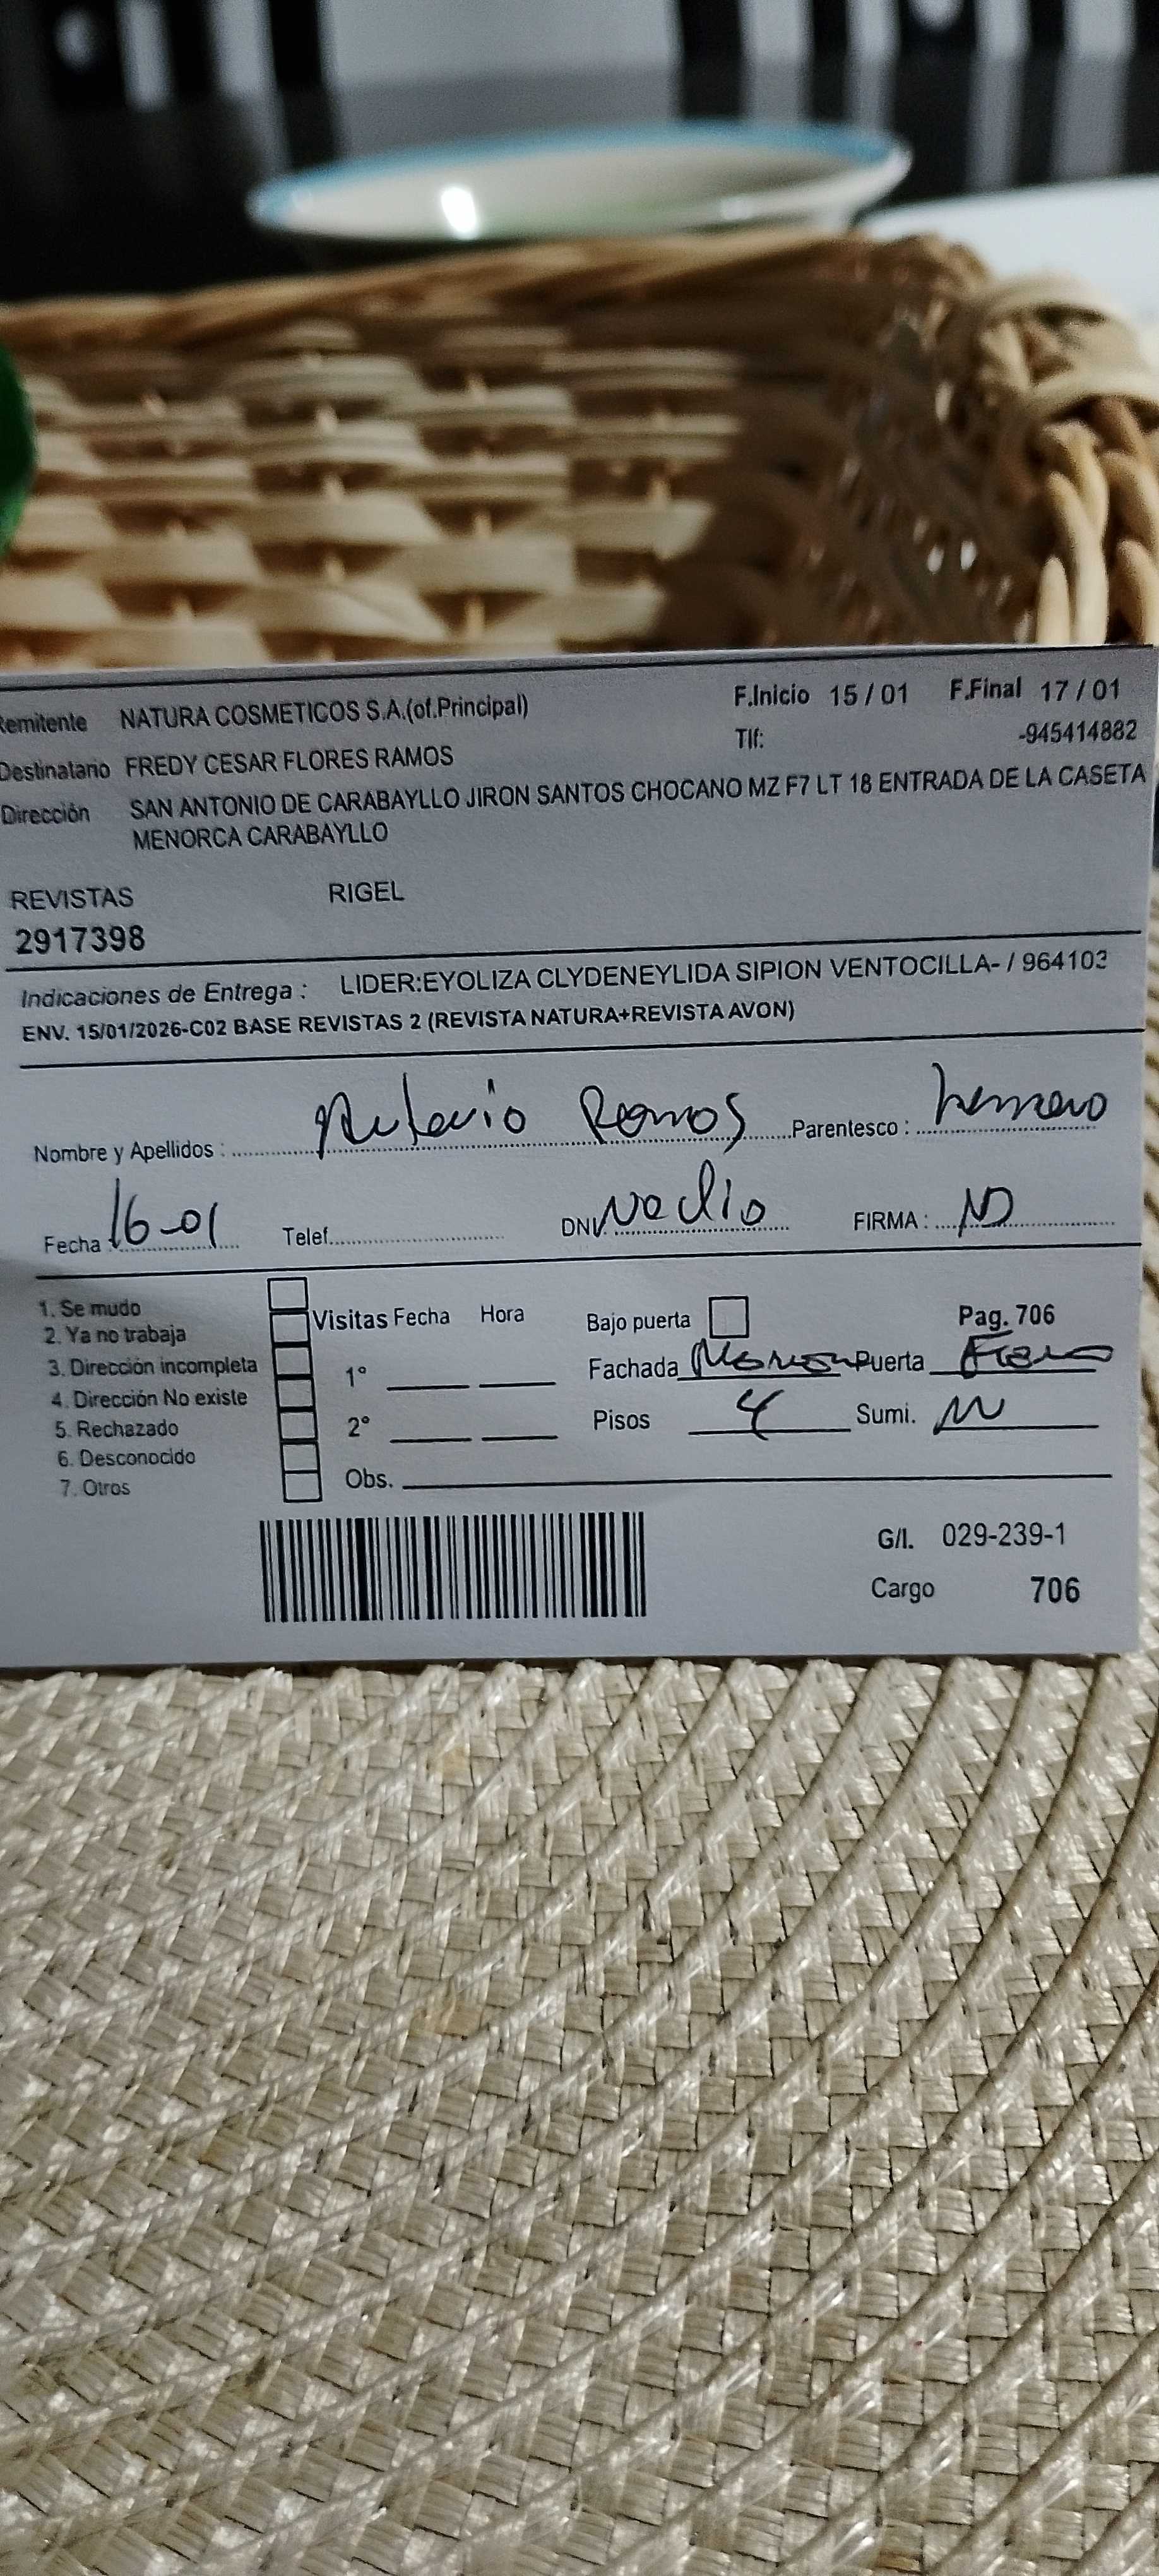 Remitente NATURA COSMETICOS S.A.(of.Principal) F.Inicio 15 / 01 F.Final 17 / 01
Tlf: -945414882
Destinatario FREDY CESAR FLORES RAMOS
Dirección SAN ANTONIO DE CARABAYLLO JIRON SANTOS CHOCANO MZ F7 LT 18 ENTRADA DE LA CASETA
MENORCA CARABAYLLO
REVISTAS RIGEL
2917398
Indicaciones de Entrega : LIDER:EYOLIZA CLYDENEYLIDA SIPION VENTOCILLA- / 964103
ENV. 15/01/2026-C02 BASE REVISTAS 2 (REVISTA NATURA+REVISTA AVON)
Nombre y Apellidos : Ramos Parentesco : hermano
Fecha : 16-01 Telef. DNI No dio FIRMA :
1. Se mudo
2. Ya no trabaja
3. Dirección incompleta
4. Dirección No existe
5. Rechazado
6. Desconocido
7. Otros
Visitas Fecha Hora
1°
2°
Obs.
Bajo puerta Pag. 706
Fachada Puerta
Pisos 4 Sumi.
G/I. 029-239-1
Cargo 706